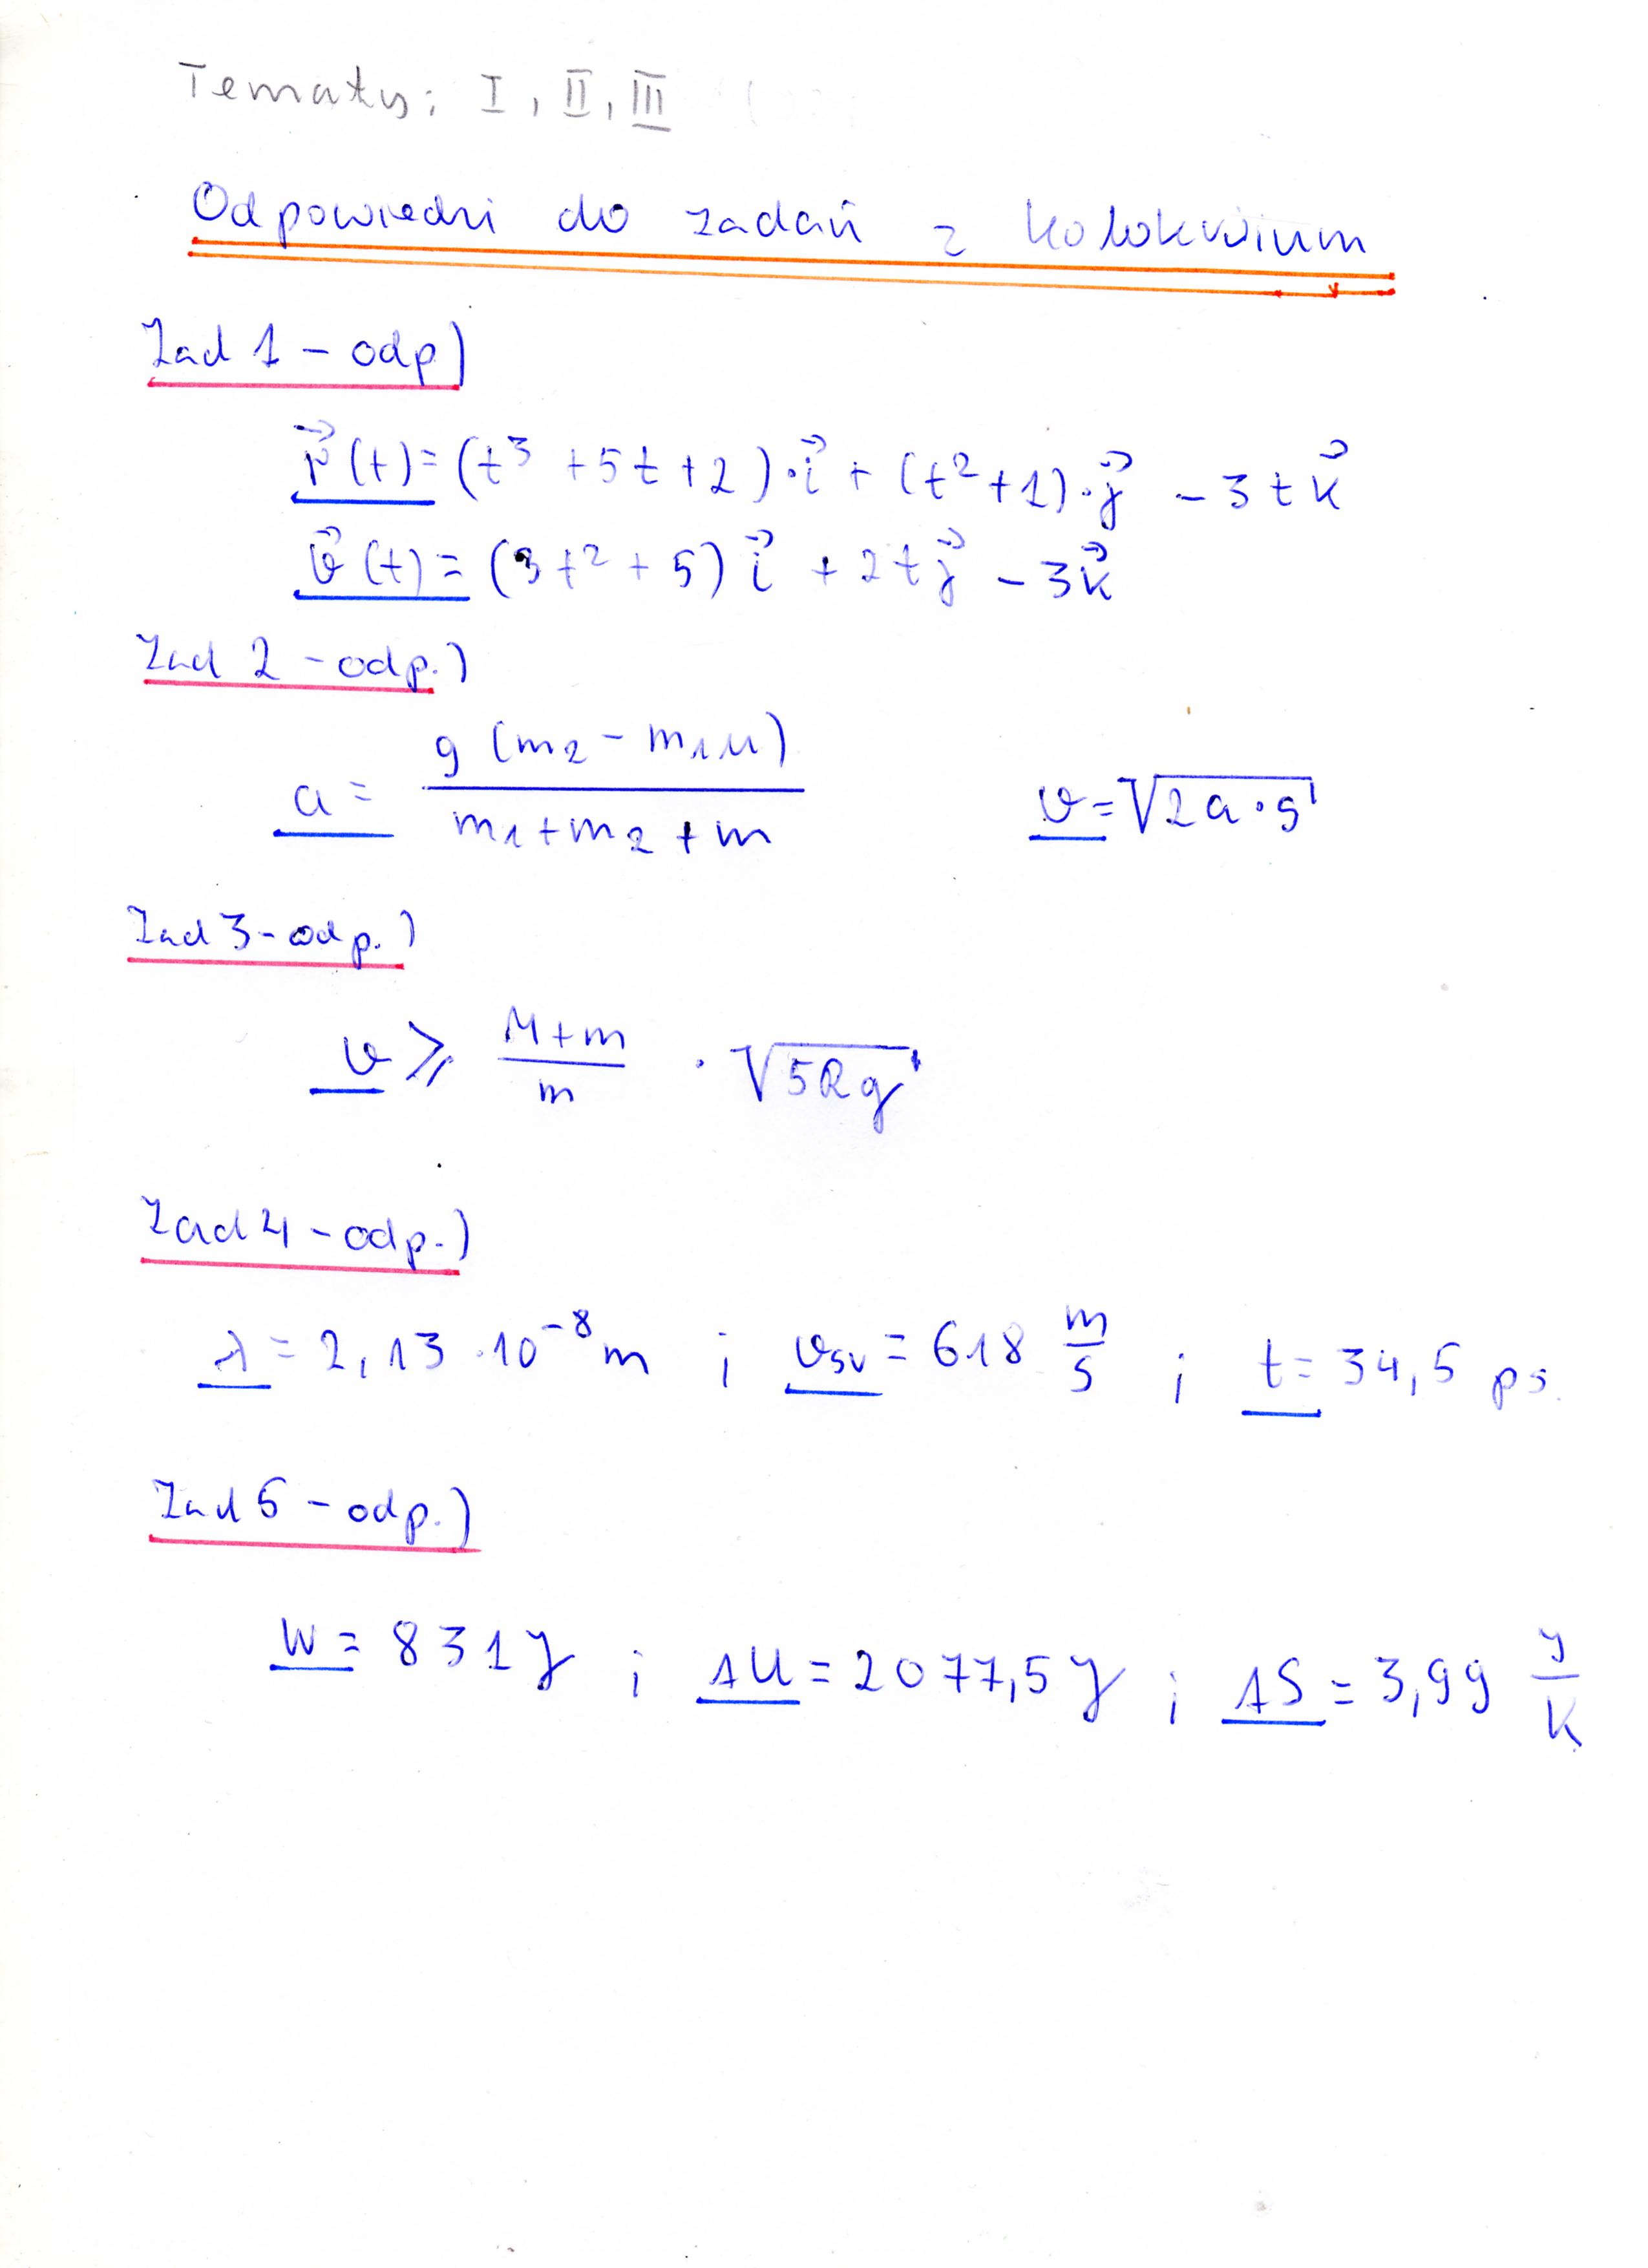 Tematy: I, II, III
Odpowiedzi do zadań z kolokwium
Zad 1 - odp)
r⃗(t) = (t³ + 5t + 2)·i⃗ + (t² + 1)·j⃗ - 3tk⃗
v⃗(t) = (3t² + 5)i⃗ + 2tj⃗ - 3k⃗
Zad 2 - odp.)
a = g(m₂ - m₁μ) / (m₁ + m₂ + m)    v = √(2a·s)
Zad 3 - odp.)
v ⩾ (M + m) / m · √(5Rg)
Zad 4 - odp.)
λ = 2,13·10⁻⁸m ; vśr = 618 m/s ; t = 34,5 ps.
Zad 5 - odp.)
W = 831J ; ΔU = 2077,5J ; ΔS = 3,99 J/K